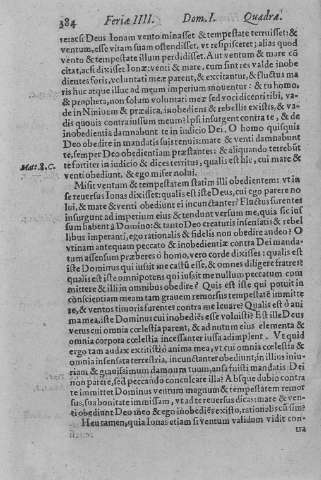 384 Feriæ IIII. Dom. I. Quadra.
retacs: Deus Ionam vento minasset & tempestate terruisset: &
ventum, esse vitam suam ostendisset, vt respisceret; alias quod
vento & tempestate illum perdidisset. Aut ventum & mare cū
citat, acsi dixisset Ionæ: venti & mare, cum sint res valde inobe
dientes foris, voluntati meæ parent, & excitantur, & fluctus ma
ris huc atque illuc ad meum imperium mouentur: & tu homo,
& propheta, non solum voluntati meæ sed voci dicenti tibi, va-
de in Niniuem & prædica, inobediens & rebellis existis, & va-
dis quouis contra iussum meum? Ipsi insurgent contra te, & de
inobedientia damnabunt te in iudicio Dei. O homo quisquis
Deo obedire in mandatis suis renuis: mare & venti damnabunt
te, semper Deo obedientiam præstantes: & aliquando terrebūt
Mat. 8. C. te fortiter in iudicio & dices territus, qualis est hic, cui mare &
venti obediunt, & ego miser nolui.
Misit ventum & tempestatem statim illi obedientem: vt in
se reuersus Ionas dixisset: qualis est iste Deus, cui ego parere no
lui, & mare & venti obediunt ei incunctanter? Fluctus furentes
insurgunt ad imperium eius & tendunt versum me, quia sic ius
sum habent à Domino: & tanto Deo creaturis insensatis & rebel
libus imperanti, ego rationalis & fidelis non obedire audeo? O
vtinam antequam peccato & inobedientiæ contra Dei manda-
tum assensum præberes ô homo, vero corde dixisses: qualis est
iste Dominus qui iussit me castū esse, & omnes diligere fratres?
qualis est iste omnipotens qui iussit me nullum peccatum com
mittere & illi in omnibus obedire? Quis est iste qui potuit in
conscientiam meam tam grauem remorsus tempestatē immitte
re, & ventos timoris furentes contra me mouere? Qualis est ô ani
ma mea, iste Dominus cui inobediēs esse voluisti? Est ille Deus
verus cui omnia cœlestia parent, & ad nutum eius elementa &
omnia corpora cœlestia incessanter iussa adimplent. Vt quid
ergo tam audax extitisti ô anima mea, vt cui omnia cœlestia &
omnia insensata terrestria, incunctanter obediunt; in illius iniu-
riam, & grauissimum damnum tuum, ausa fuisti mandatis Dei
non parere, sed peccando conculcare illa? Absque dubio contra
te immittet Dominus ventum magnum & tempestatem remor
sus, sua bonitate immissam, vt ad te reuersus dicas: mare & ven-
ti obediunt Deo meo & ego inobediēs existo, rationalis cū sim?
Heu tamen, quia Ionas etiam si ventum validum vidit con-
tra